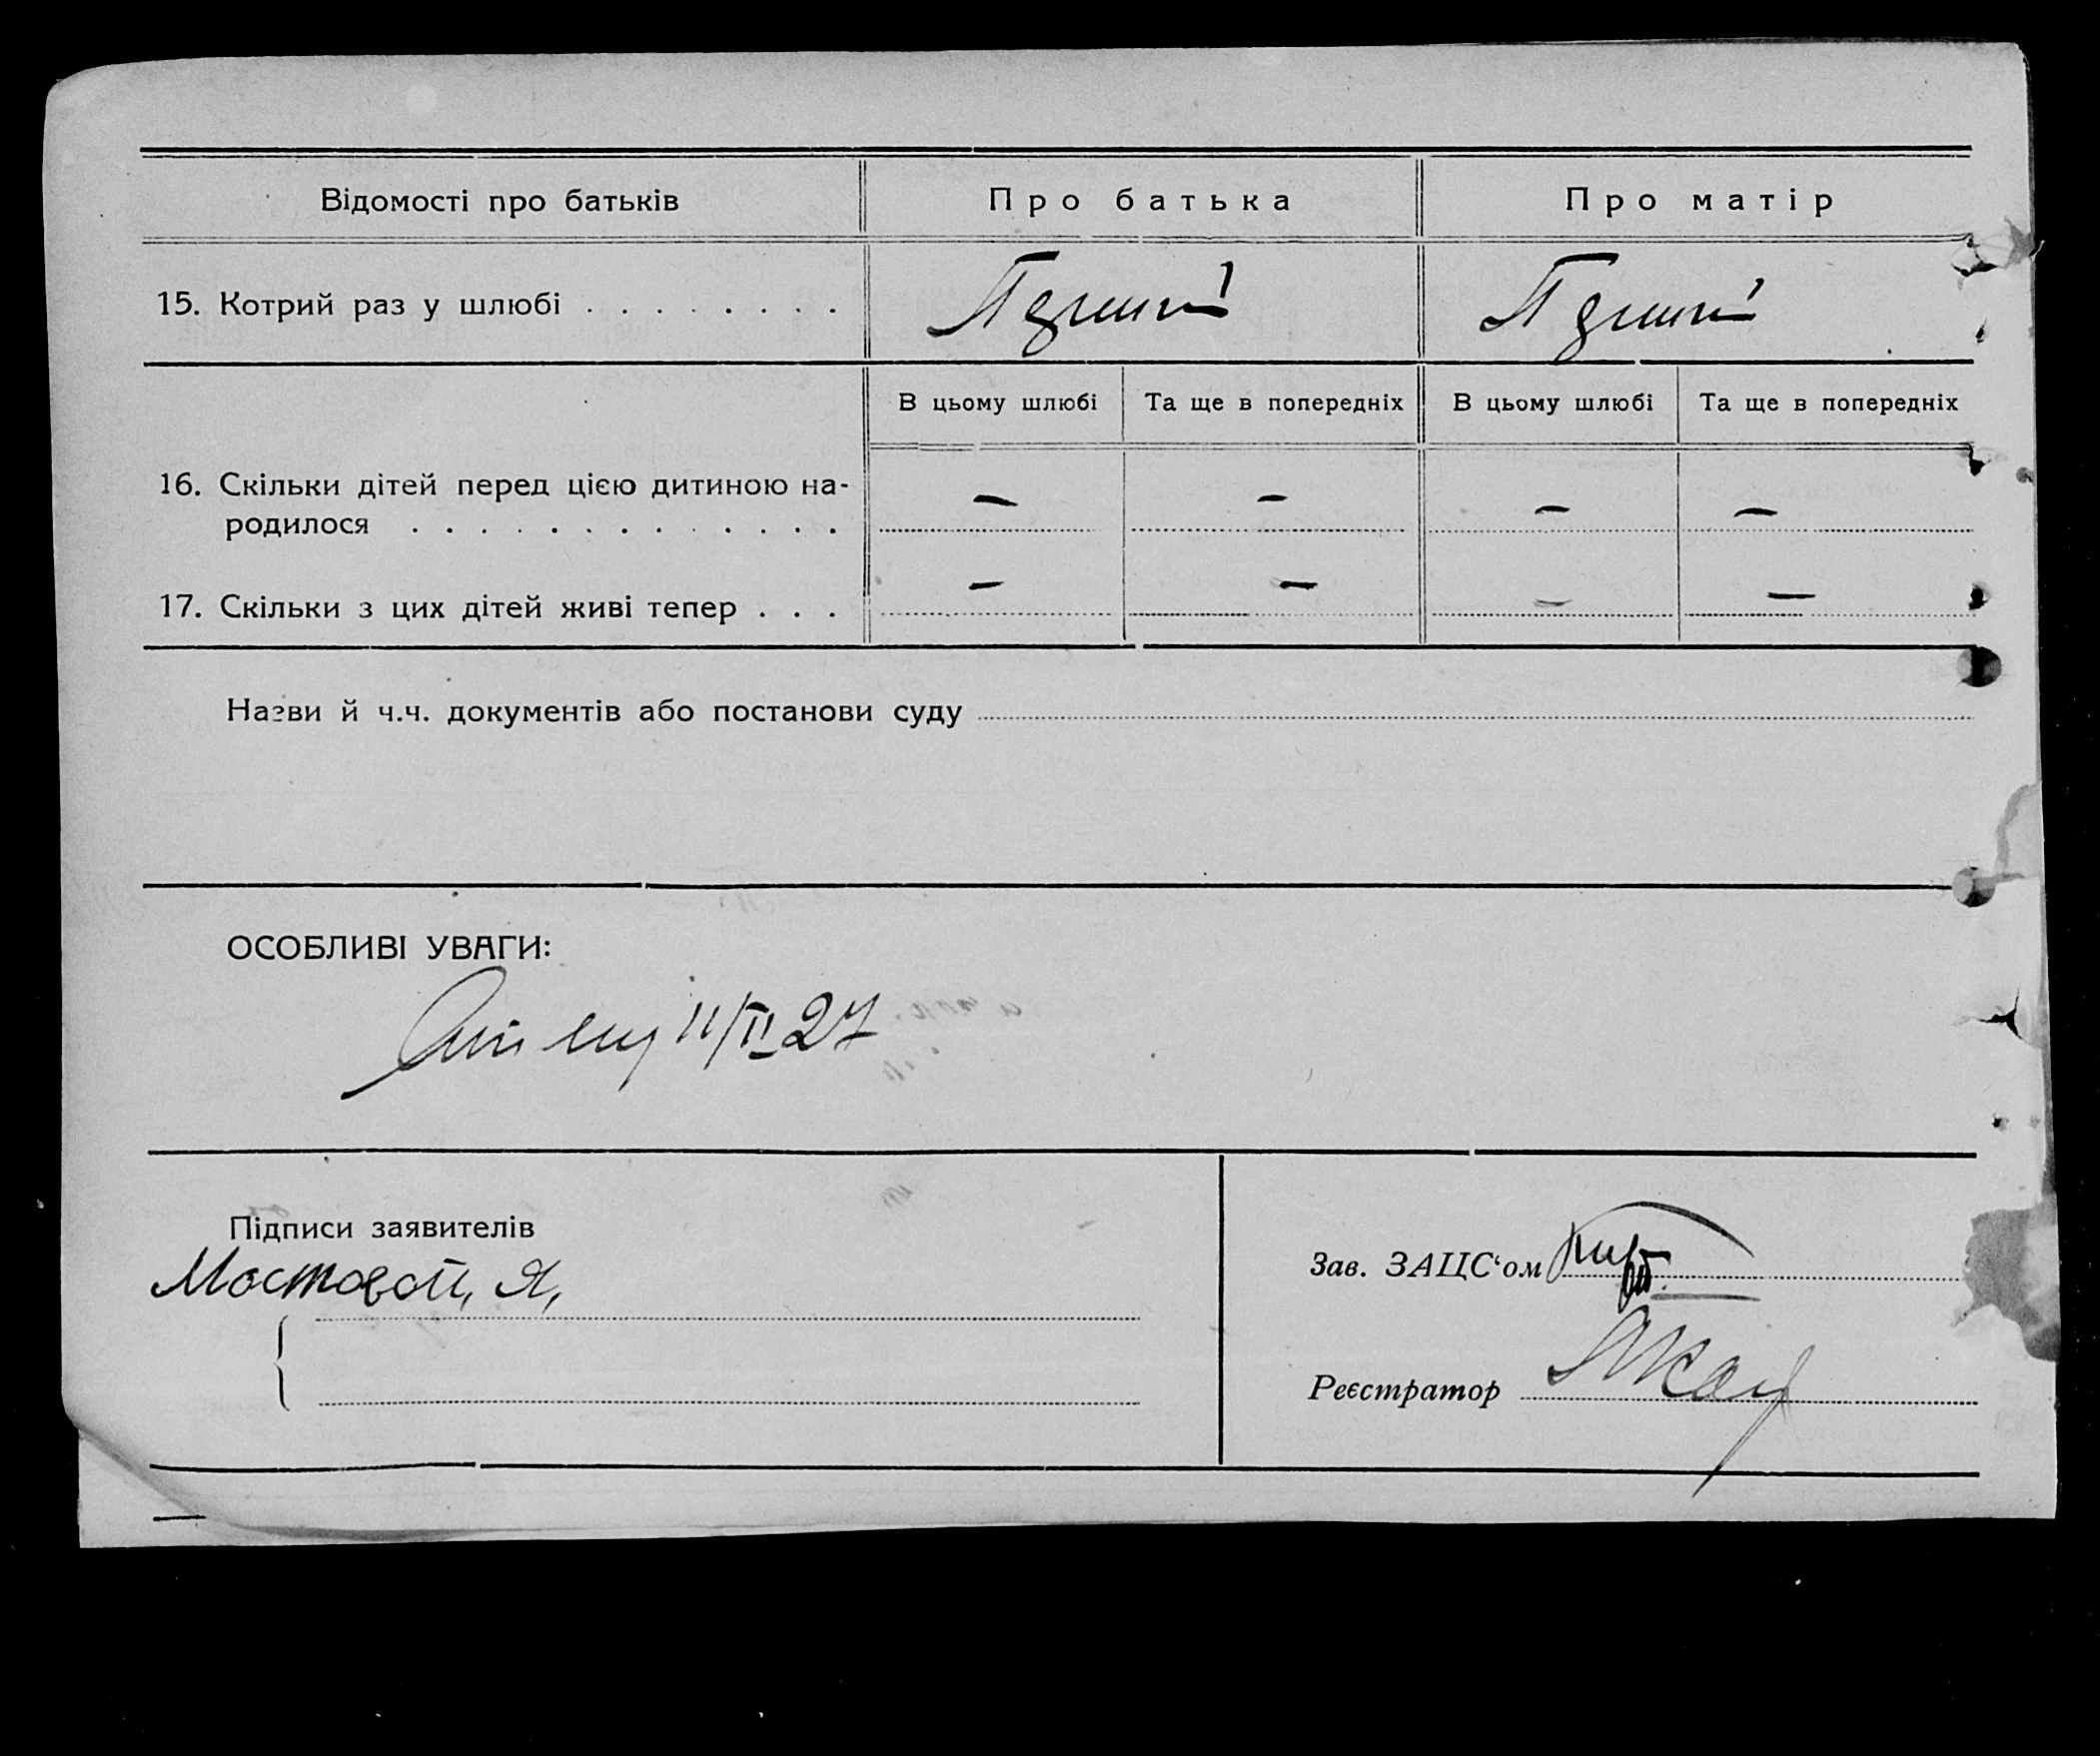 Відомості про батьків
Про батька
Про матір
15. Котрий раз у шлюбі . . . . . . . .
В цьому шлюбі
Та ще в попередніх
В цьому шлюбі
Та ще в попередніх
16. Скільки дітей перед цією дитиною на-
родилося . . . . . . . . . . . . .
— — — —
17. Скільки з цих дітей живі тепер . . .
— — — —
Назви й ч.ч. документів або постанови суду
ОСОБЛИВІ УВАГИ:
11/II 27
Підписи заявителів
Мостовой, Я,
Зав. ЗАЦС‘ом
Реєстратор